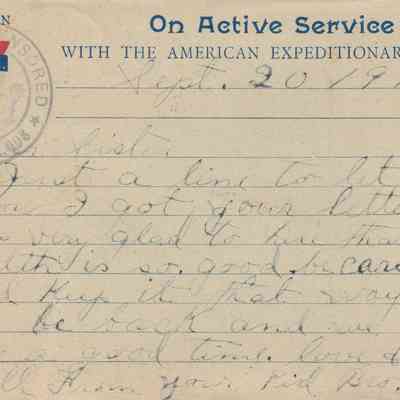 N
On Active Service
WITH THE AMERICAN EXPEDITIONAR
NSORED
Sept. 20 191
Sist.
Just a line to let
I got your lette
very glad to hear that
lth is so good. be care
d keep it that way
be back and we
a good time. love
ll From your kid Bro.